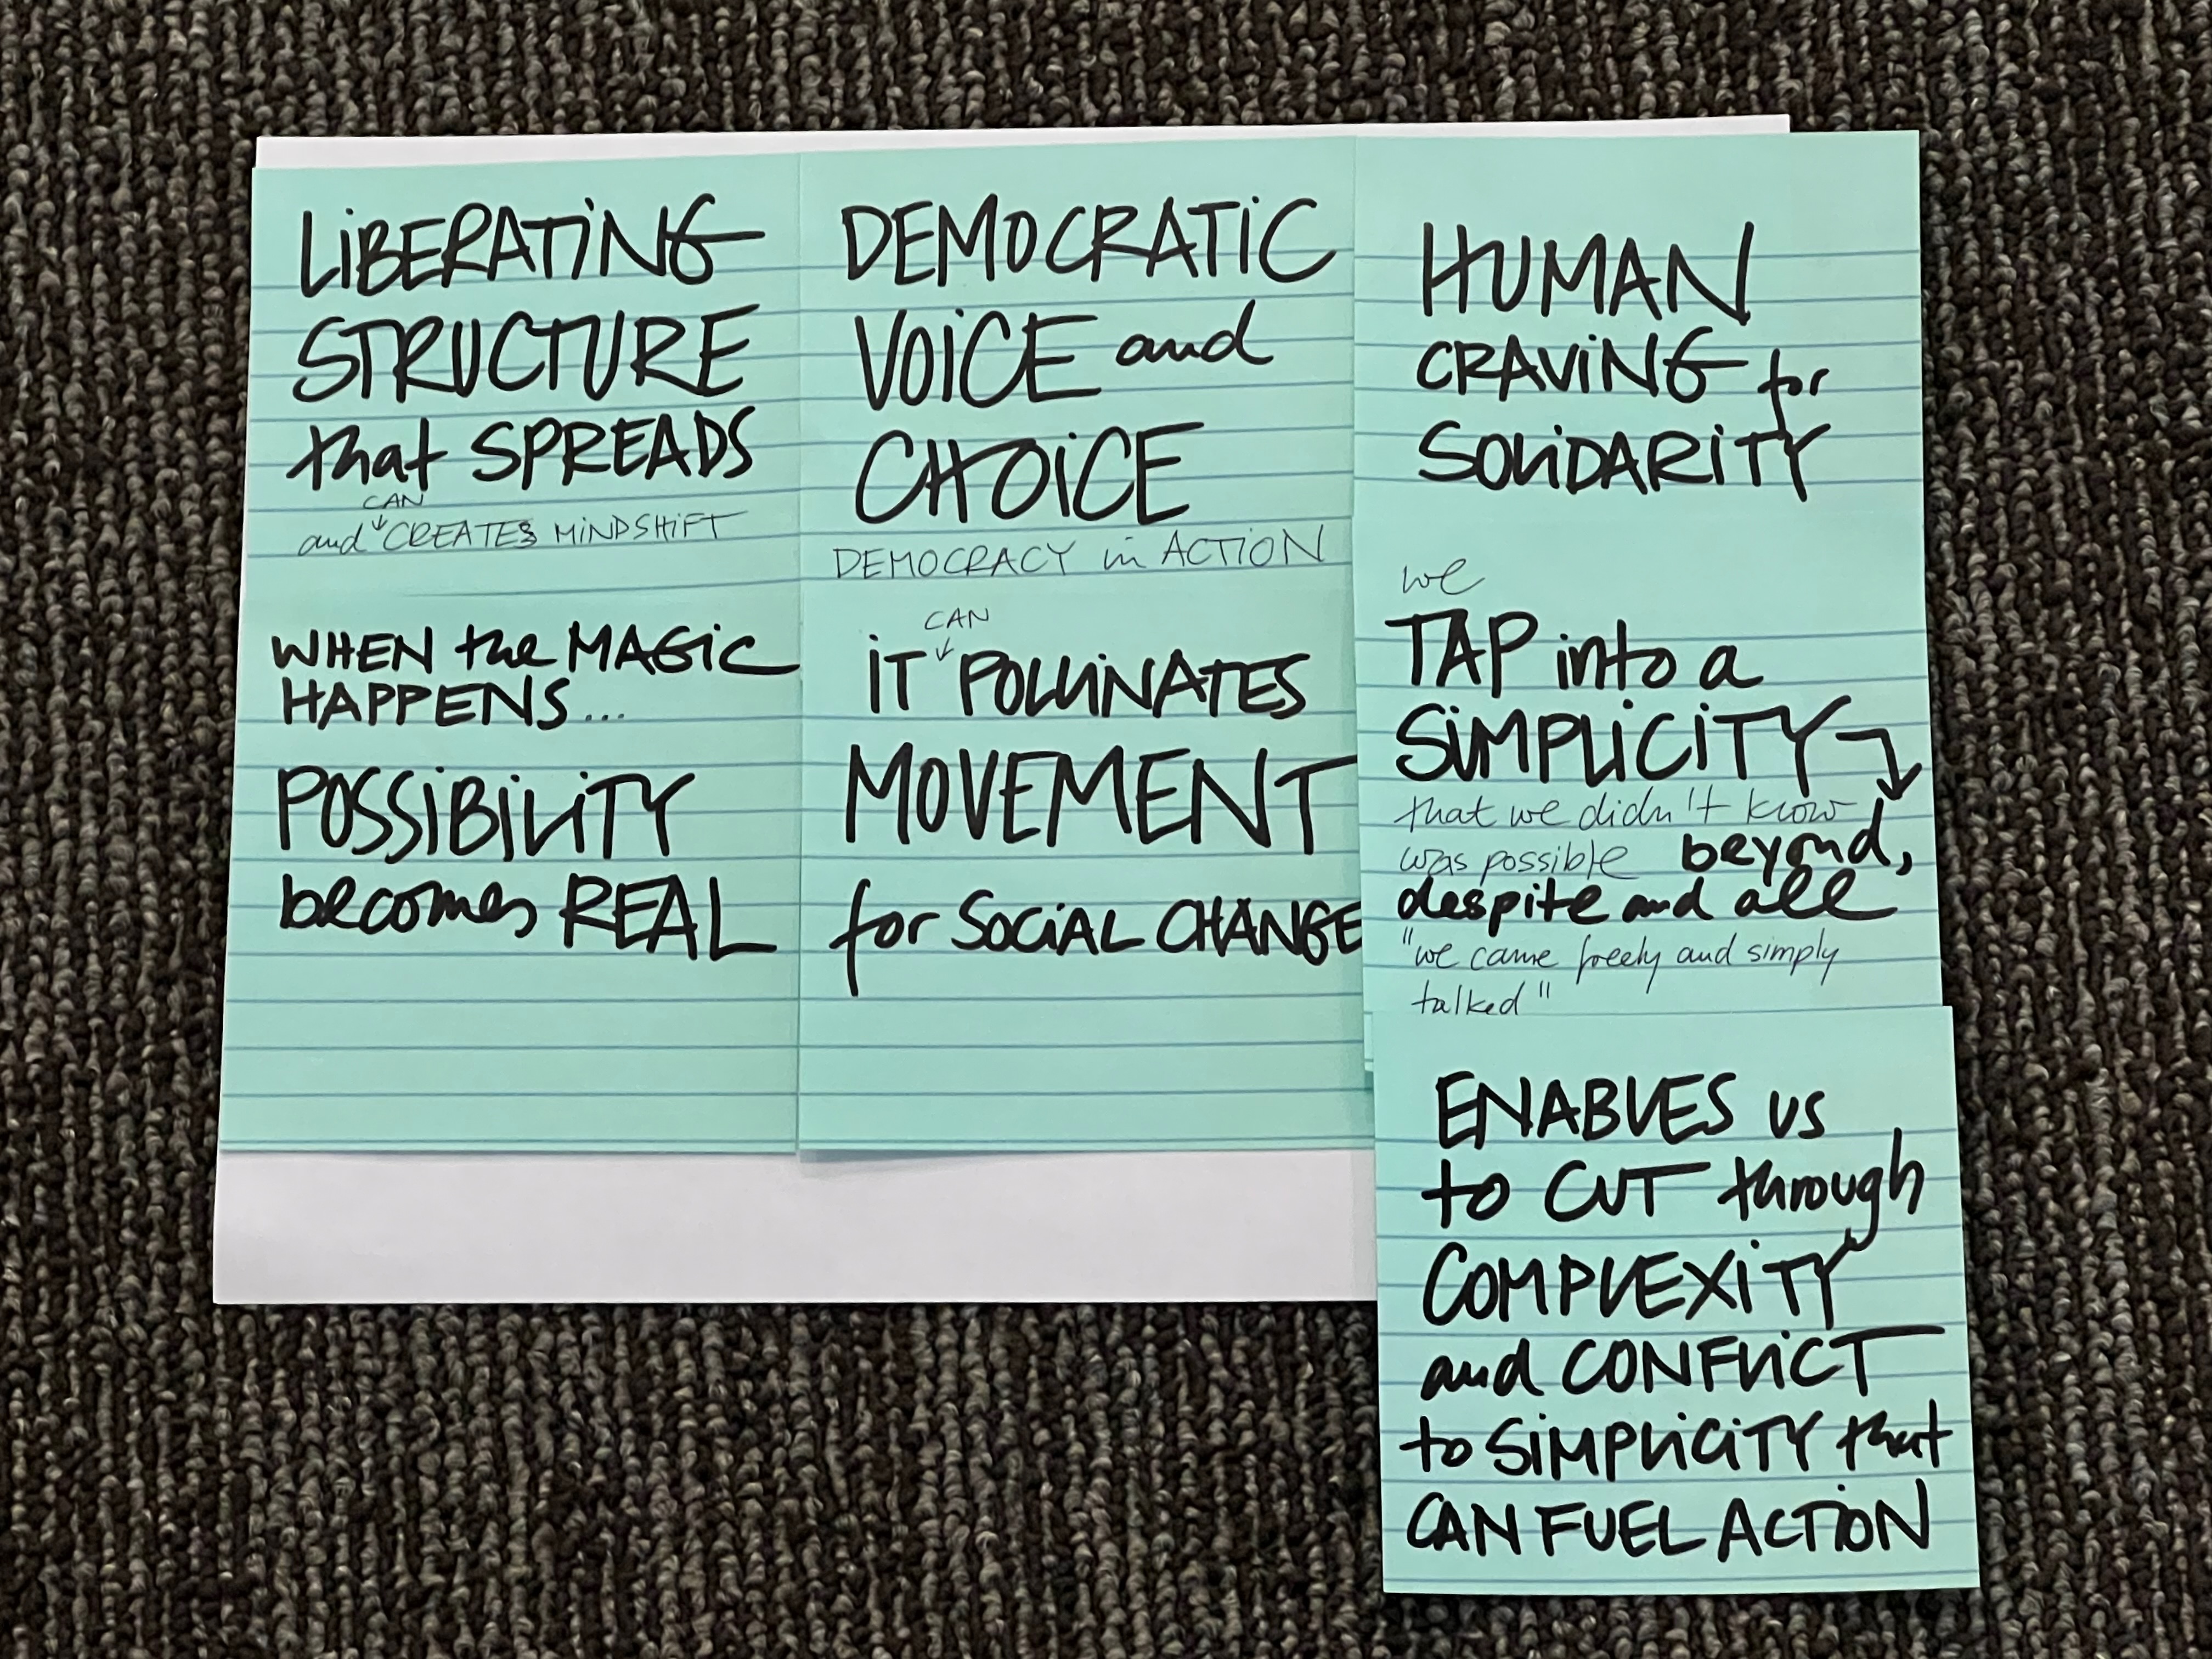 LIBERATING
STRUCTURE
that SPREADS
CAN
and CREATES MINDSHIFT
WHEN the MAGIC
HAPPENS...
POSSIBILITY
becomes REAL
DEMOCRATIC
VOICE and
CHOICE
DEMOCRACY in ACTION
CAN
IT POLLINATES
MOVEMENT
for SOCIAL CHANGE
HUMAN
CRAVING for
SOLIDARITY
we
TAP into a
SIMPLICITY
that we didn't know
was possible beyond,
despite and all
"we came freely and simply
talked"
ENABLES us
to CUT through
COMPLEXITY
and CONFLICT
to SIMPLICITY that
CAN FUEL ACTION